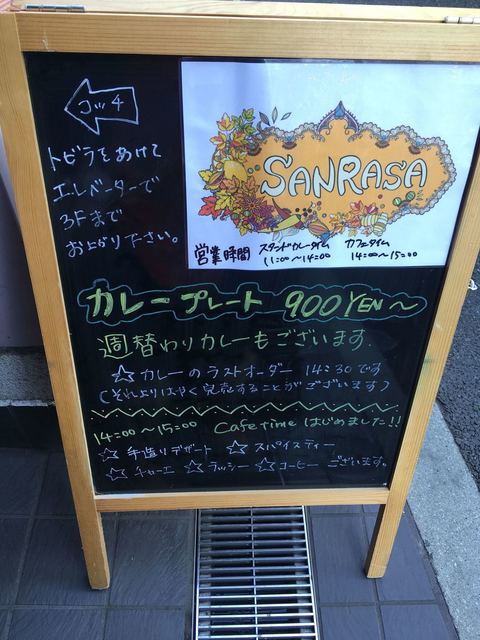 コッチ
トビラをあけて
エレベーターで
3Fまで
お上がり下さい。
SANRASA
営業時間 スタンドカレータイム カフェタイム
11:00〜14:00 14:00〜15:00
カレープレート 900YEN〜
週替わりカレーもございます.
☆ カレーのラストオーダー 14:30です
(それよりはやく完売することがございます)
14:00〜15:00 Cafe time はじめました!!
☆ 手造りデザート ☆ スパイスティー
☆ チャーエ ☆ ラッシー ☆ コーヒー ございます。